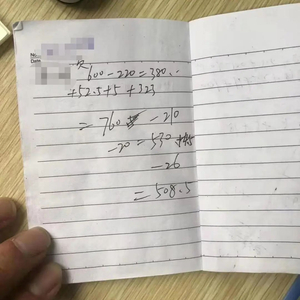 No.
Date
欠600-220=380..
+52.5+5 +323
=760 -210
-20=530
-26
=508.5